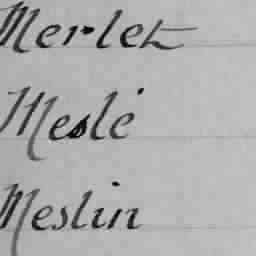 Merlet
Meslé
Meslin